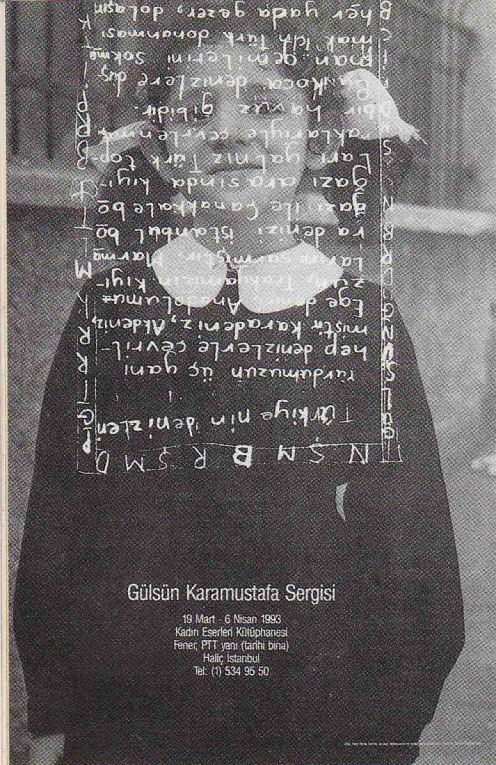 Türkiye'nin denizleri
Yurdumuzun üç yanı
hep denizlerle çevril-
miştir Karadeniz, Akdeniz,
Ege denizi, Anadolumu
zun, Trakyamızın kıyı-
larını sarmıştır. Marma
ra denizi istanbul bo
ğazı ile Çanakkale bo
ğazı arasında kıyı
ları yalnız Türk top-
raklarıyle
bir havuz gibidir.
denizlere düş
man gemilerini sokma
mak için Türk donanması
her yada gezer, dolaşır
Gülsün Karamustafa Sergisi
19 Mart - 6 Nisan 1993
Kadın Eserleri Kütüphanesi
Fener, PTT yanı (tarihi bina)
Haliç İstanbul
Tel: (1) 534 95 50